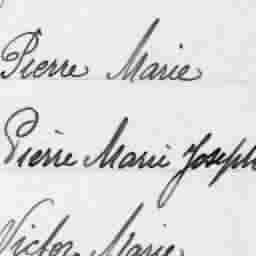 Pierre Marie
Pierre Marie Joseph
Victor Marie